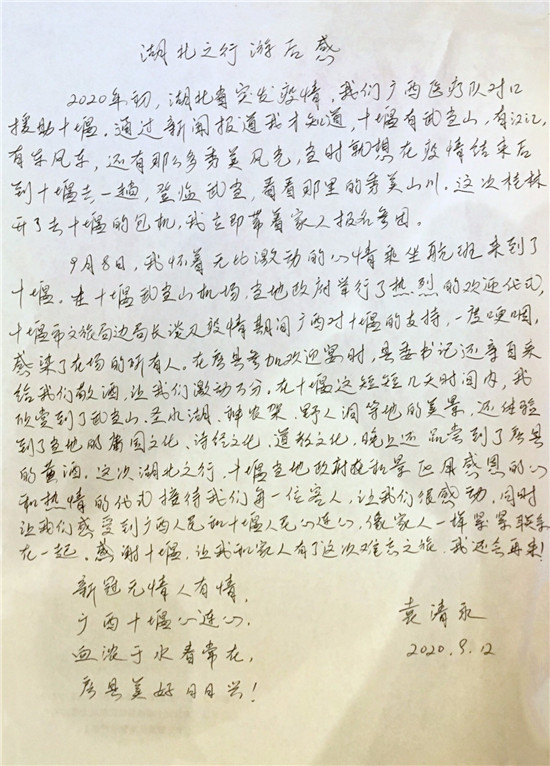 湖北之行游后感
2020年初，湖北省突发疫情，我们广西医疗队对口
援助十堰。通过新闻报道我才知道，十堰有武当山，有汉江，
有东风车，还有那么多秀美风光，当时就想在疫情结束后
到十堰去一趟，登临武当，看看那里的秀美山川。这次桂林
开了去十堰的包机，我立即带着家人报名参团。
9月8日，我怀着无比激动的心情乘坐航班来到了
十堰。在十堰武当山机场，当地政府举行了热烈的欢迎仪式，
十堰市文旅局边局长谈及疫情期间广西对十堰的支持，一度哽咽，
感染了在场的所有人。在房县参加欢迎宴时，县委书记还亲自来
给我们敬酒，让我们激动万分。在十堰这短短几天时间内，我
欣赏到了武当山、圣水湖、神农架、野人洞等地的美景，还体验
到了当地的诗经文化、道教文化，晚上还品尝到了房县
的黄酒。这次湖北之行，十堰当地政府用感恩的心
和热情的仪式接待我们每一位客人，让我们很感动，同时
让我们感受到广西人民和十堰人民心连心，像家人一样紧紧联系
在一起。感谢十堰，让我和家人有了这次难忘之旅，我还会再来！
新冠无情人有情，
广西十堰心连心，
血浓于水春常在，
房县美好日日兴！
袁清永
2020.9.12